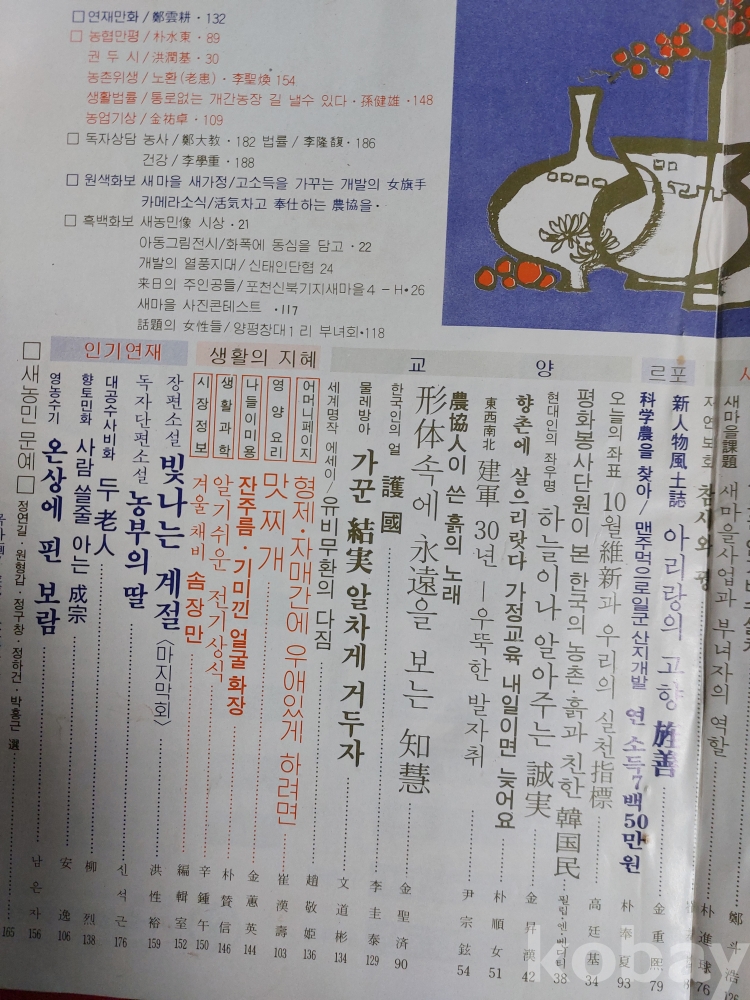 □ 연재만화/鄭雲耕·132
□ 농협만평/朴水東·89
권두시/洪潤基·30
농촌위생/노환(老患)·李聖煥 154
생활법률/통로없는 개간농장 길 낼수 있다·孫健雄·148
농업기상/金祐卓·109
□ 독자상담 농사/鄭大教·182 법률/李隆馥·186
건강/李學重·188
□ 원색화보 새마을 새가정/고소득을 가꾸는 개발의 女旗手
카메라소식/活気차고 奉仕하는 農協을·
□ 흑백화보 새농민像 시상·21
아동그림전시/화폭에 동심을 담고·22
개발의 열풍지대/신태인단협 24
来日의 주인공들/포천신북기지새마을 4-H·26
새마을 사진콘테스트·117
話題의 女性들/양평창대1리 부녀회·118
르포
새마을課題 새마을사업과 부녀자의 역할 朴進球 76
新人物風土誌 아리랑의 고향 旌善 金重熙 79
科学農을 찾아/맨주먹으로일군 산지개발 연 소득7백50만원 朴奉夏 93
교양
오늘의 좌표 10월維新과 우리의 실천指標 高廷基 34
평화봉사단원이 본 한국의 농촌·흙과 친한 韓国民 38
현대인의 좌우명 하늘이나 알아주는 誠実 金昇漢 42
향촌에 살으리랏다 가정교육 내일이면 늦어요 朴順女 51
東西南北 建軍 30년 —우뚝한 발자취 尹宗鉉 54
農協人이 쓴 흙의 노래
形体속에 永遠을 보는 知慧 金聖済 90
한국인의 얼 護國 李圭泰 129
물레방아 가꾼 結実 알차게 거두자 文道彬 134
세계명작 에세이/유비무환의 다짐 趙敬姫 136
생활의 지혜
어머니페이지 형제·자매간에 우애있게 하려면 崔漢壽 103
영양요리 맛찌개 金惠英 144
나들이미용 잔주름·기미낀 얼굴 화장 朴賛信 146
생활과학 알기쉬운 전기상식 辛鍾午 150
시장정보 겨울채비 솜장만 編輯室 152
인기연재
장편소설 빛나는 계절 <마지막회> 洪性裕 159
독자단편소설 농부의 딸 신석근 176
대공수사비화 두 老人 柳烈 138
향토민화 사람 쓸줄 아는 成宗 安逸 106
영농수기 온상에 핀 보람 남윤자 156
□새농민 문예□ 정연길·원형갑·정구창·정하건·박홍근 選 165
kobay